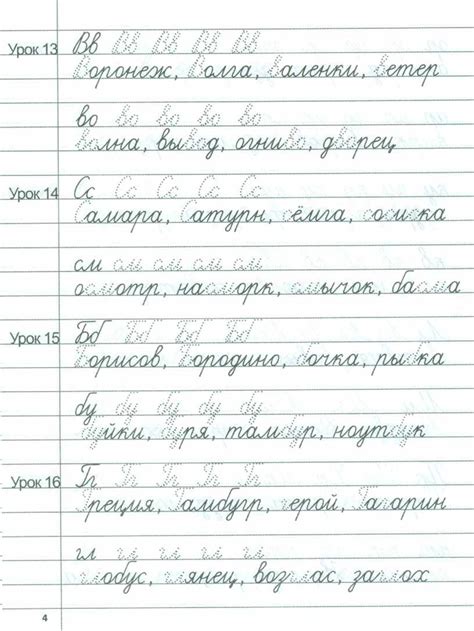 Урок 13 Вв Вв Вв Вв Вв
Воронеж, Волга, валенки, ветер
во во во во во
волна, вывод, огниво, дворец
Урок 14 Сс Сс Сс Сс Сс
Самара, Сатурн, сёмга, сосиска
см см см см см
осмотр, насморк, смычок, басма
Урок 15 Бб Бб Бб Бб
Борисов, Бородино, бочка, рыбка
бу бу бу бу бу
буйки, буря, тамбур, ноутбук
Урок 16 Гг Гг Гг Гг Гг
Греция, Гамбугр, герой, Гагарин
гл гл гл гл гл
глобус, глянец, возглас, заглох
4